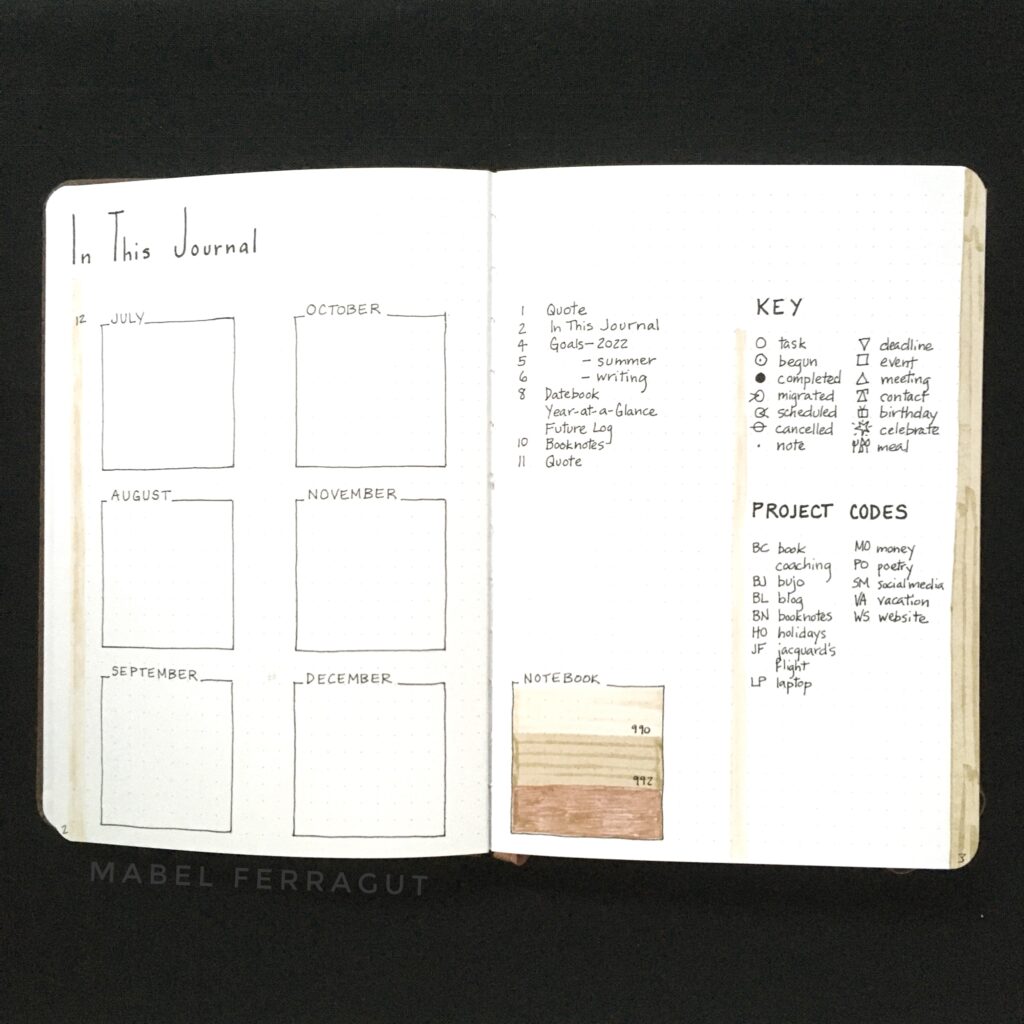 In This Journal
12 JULY
OCTOBER
AUGUST
NOVEMBER
SEPTEMBER
DECEMBER
2
1 Quote
2 In This Journal
4 Goals - 2022
5 - summer
6 - writing
8 Datebook
Year-at-a-Glance
Future Log
10 Booknotes
11 Quote
NOTEBOOK
990
992
KEY
task
begun
completed
migrated
scheduled
cancelled
note
deadline
event
meeting
contact
birthday
celebrate
meal
PROJECT CODES
BC book
coaching
BJ bujo
BL blog
BN booknotes
HO holidays
JF jacquard's
flight
LP laptop
MO money
PO poetry
SM social media
VA vacation
WS website
3
MABEL FERRAGUT